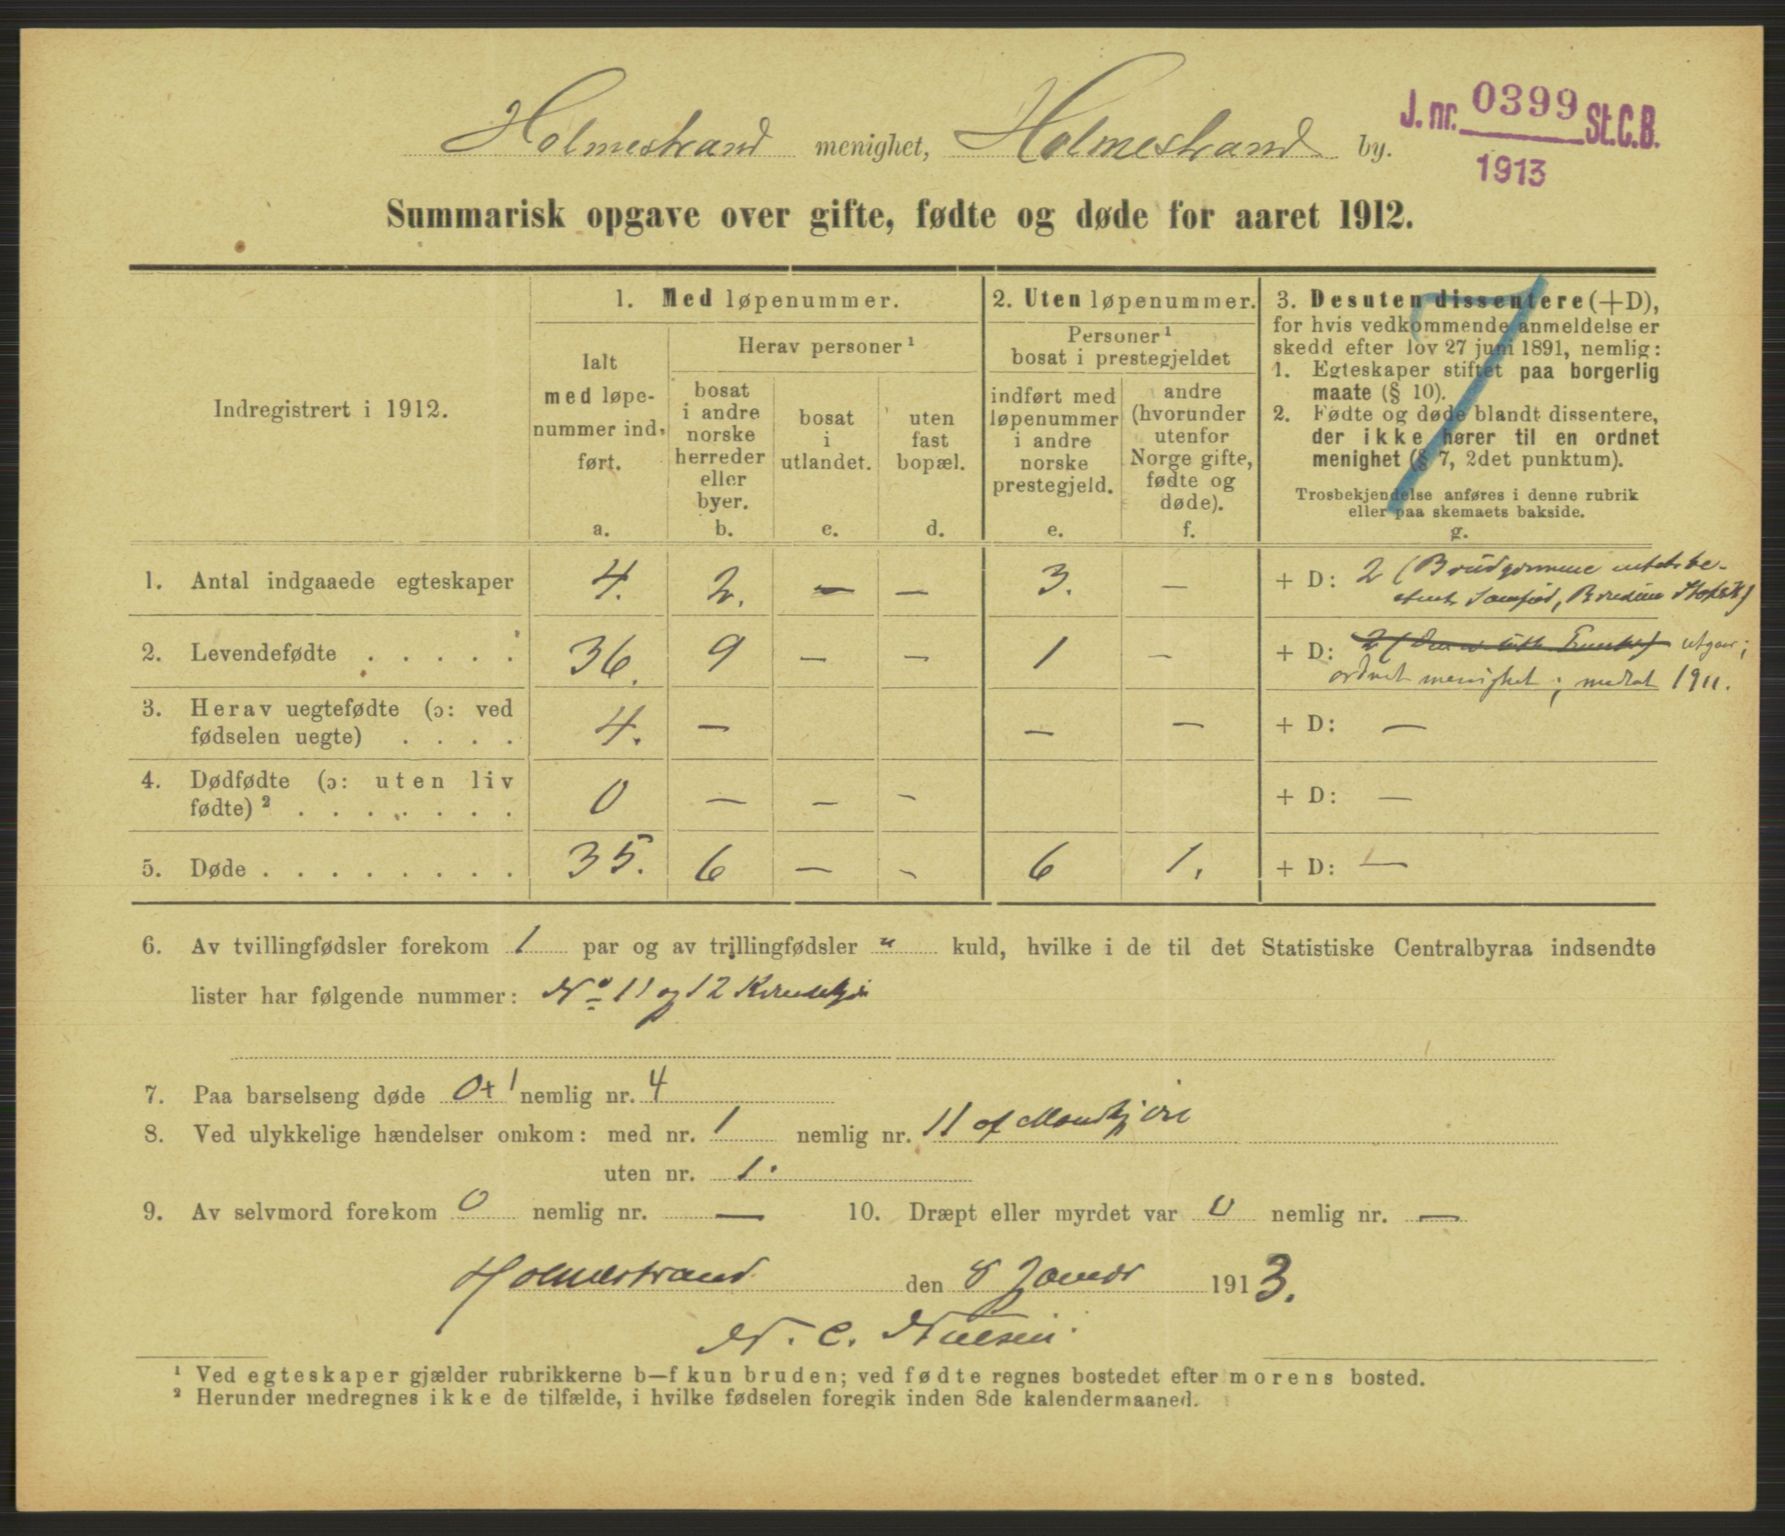 Holmestrand menighet, Holmestrand by.
J. nr. 0399 St. C. B.
1913
Summarisk opgave over gifte, fødte og døde for aaret 1912.
Indregistrert i 1912.
1. Med løpenummer.
Ialt med løpe-nummer ind-ført.
a.
Herav personer¹
bosat i andre norske herreder eller byer.
b.
bosat i utlandet.
c.
uten fast bopæl.
d.
2. Uten løpenummer.
Personer¹ bosat i prestegjeldet
indført med løpenummer i andre norske prestegjeld.
e.
andre (hvorunder utenfor Norge gifte, fødte og døde).
f.
3. Desuten dissentere (+D),
for hvis vedkommende anmeldelse er
skedd efter lov 27 juni 1891, nemlig:
1. Egteskaper stiftet paa borgerlig
maate (§ 10).
2. Fødte og døde blandt dissentere,
der ikke hører til en ordnet
menighet (§ 7, 2det punktum).
Trosbekjendelse anføres i denne rubrik
eller paa skemaets bakside.
g.
7
1. Antal indgaaede egteskaper 4. 2. — — 3. — + D: 2 (Brudgommene
2. Levendefødte . . . . . 36. 9 — — 1 — + D: 2 utgaar;
ordnet menighet; medtat 1911.
3. Herav uegtefødte (ɔ: ved
fødselen uegte) . . . . 4. — — — + D: —
4. Dødfødte (ɔ: uten liv
fødte)² . . . . . . . 0 — — — + D: —
5. Døde . . . . . . . . 35. 6 — - 6 1. + D: —
6. Av tvillingfødsler forekom 1 par og av trillingfødsler " kuld, hvilke i de til det Statistiske Centralbyraa indsendte
lister har følgende nummer: No 11 og 12 Kvindekjøn
7. Paa barselseng døde 0+1 nemlig nr. 4
8. Ved ulykkelige hændelser omkom: med nr. 1 nemlig nr. 11 af Mandkjøn
uten nr. 1.
9. Av selvmord forekom 0 nemlig nr. — 10. Dræpt eller myrdet var 0 nemlig nr. —
Holmestrand den 8 Januar 1913.
N. C. Nielsen
¹ Ved egteskaper gjælder rubrikkerne b—f kun bruden; ved fødte regnes bostedet efter morens bosted.
² Herunder medregnes ikke de tilfælde, i hvilke fødselen foregik inden 8de kalendermaaned.